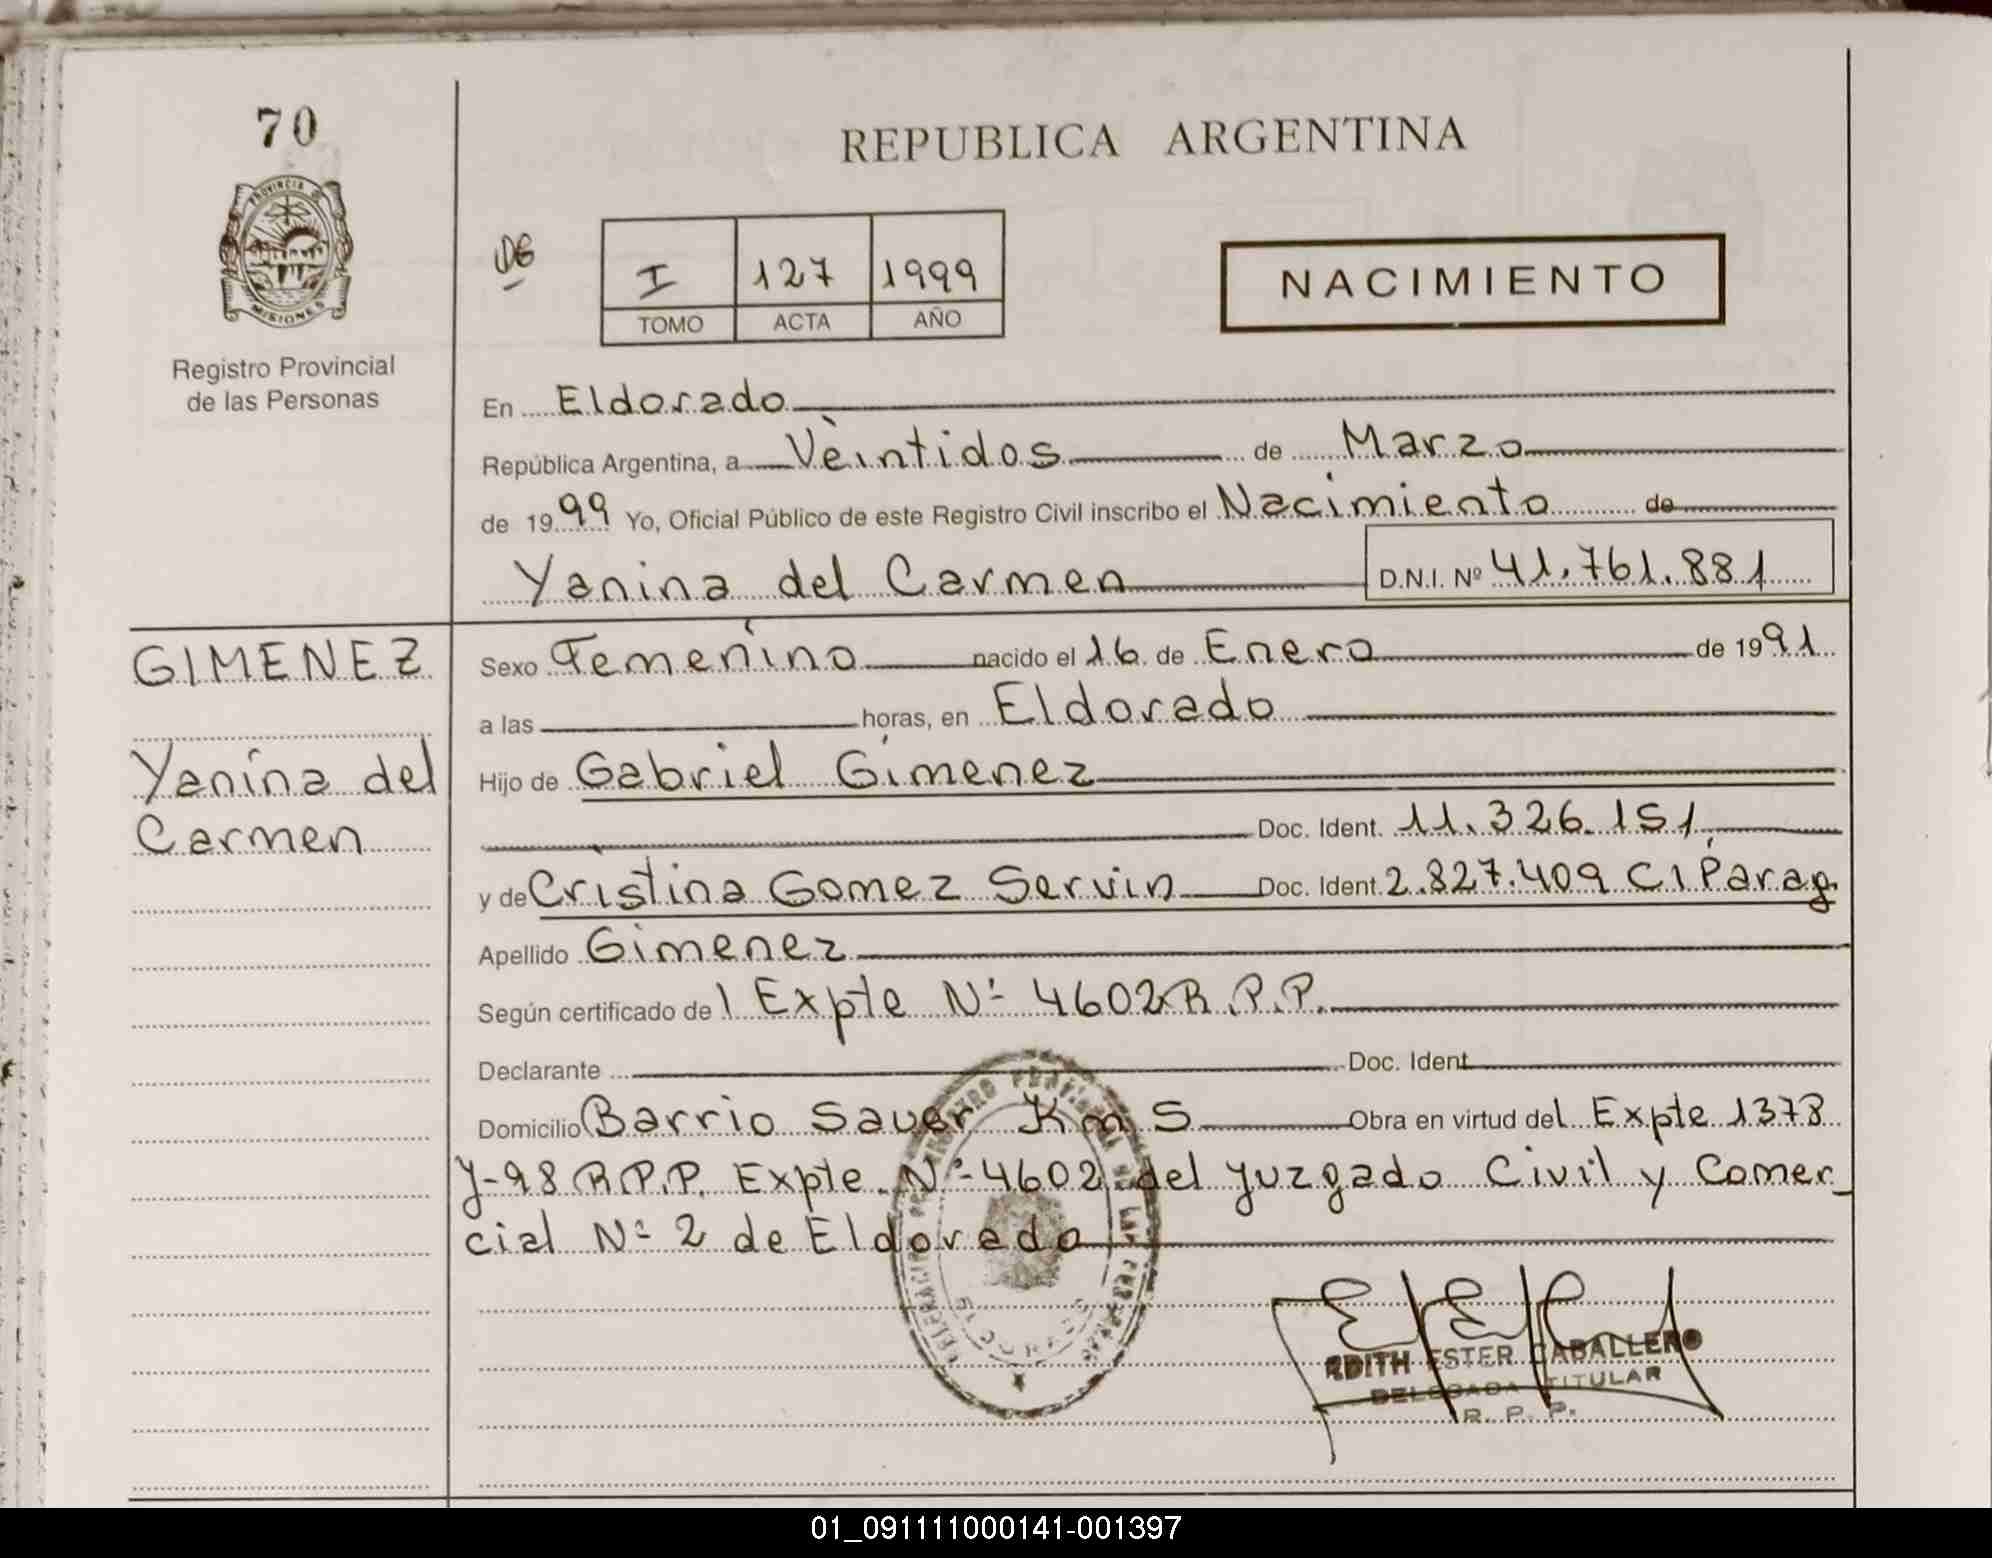 70
REPUBLICA ARGENTINA
PROVINCIA D
MISIONES
Registro Provincial
de las Personas
I 127 1999
TOMO ACTA AÑO
NACIMIENTO
En Eldorado
República Argentina, a Veintidos de Marzo
de 1999 Yo, Oficial Público de este Registro Civil inscribo el Nacimiento de
Yanina del Carmen D.N.I. Nº 41.761.881
GIMENEZ
Yanina del
Carmen
Sexo Femenino nacido el 16 de Enero de 1991
a las horas, en Eldorado
Hijo de Gabriel Gimenez
Doc. Ident. 11.326.151
y de Cristina Gomez Servin Doc. Ident. 2.827.409 CI Parag
Apellido Gimenez
Según certificado del Expte Nº 4602 R.P.P.
Declarante Doc. Ident
Domicilio Barrio Sauer Km 5 Obra en virtud del Expte 1378
J-98 R.P.P. Expte. Nº 4602 del Juzgado Civil y Comer_
cial Nº 2 de Eldorado
EDITH ESTER CABALLERO
DELEGADA TITULAR
R. P. P.
01_091111000141-001397